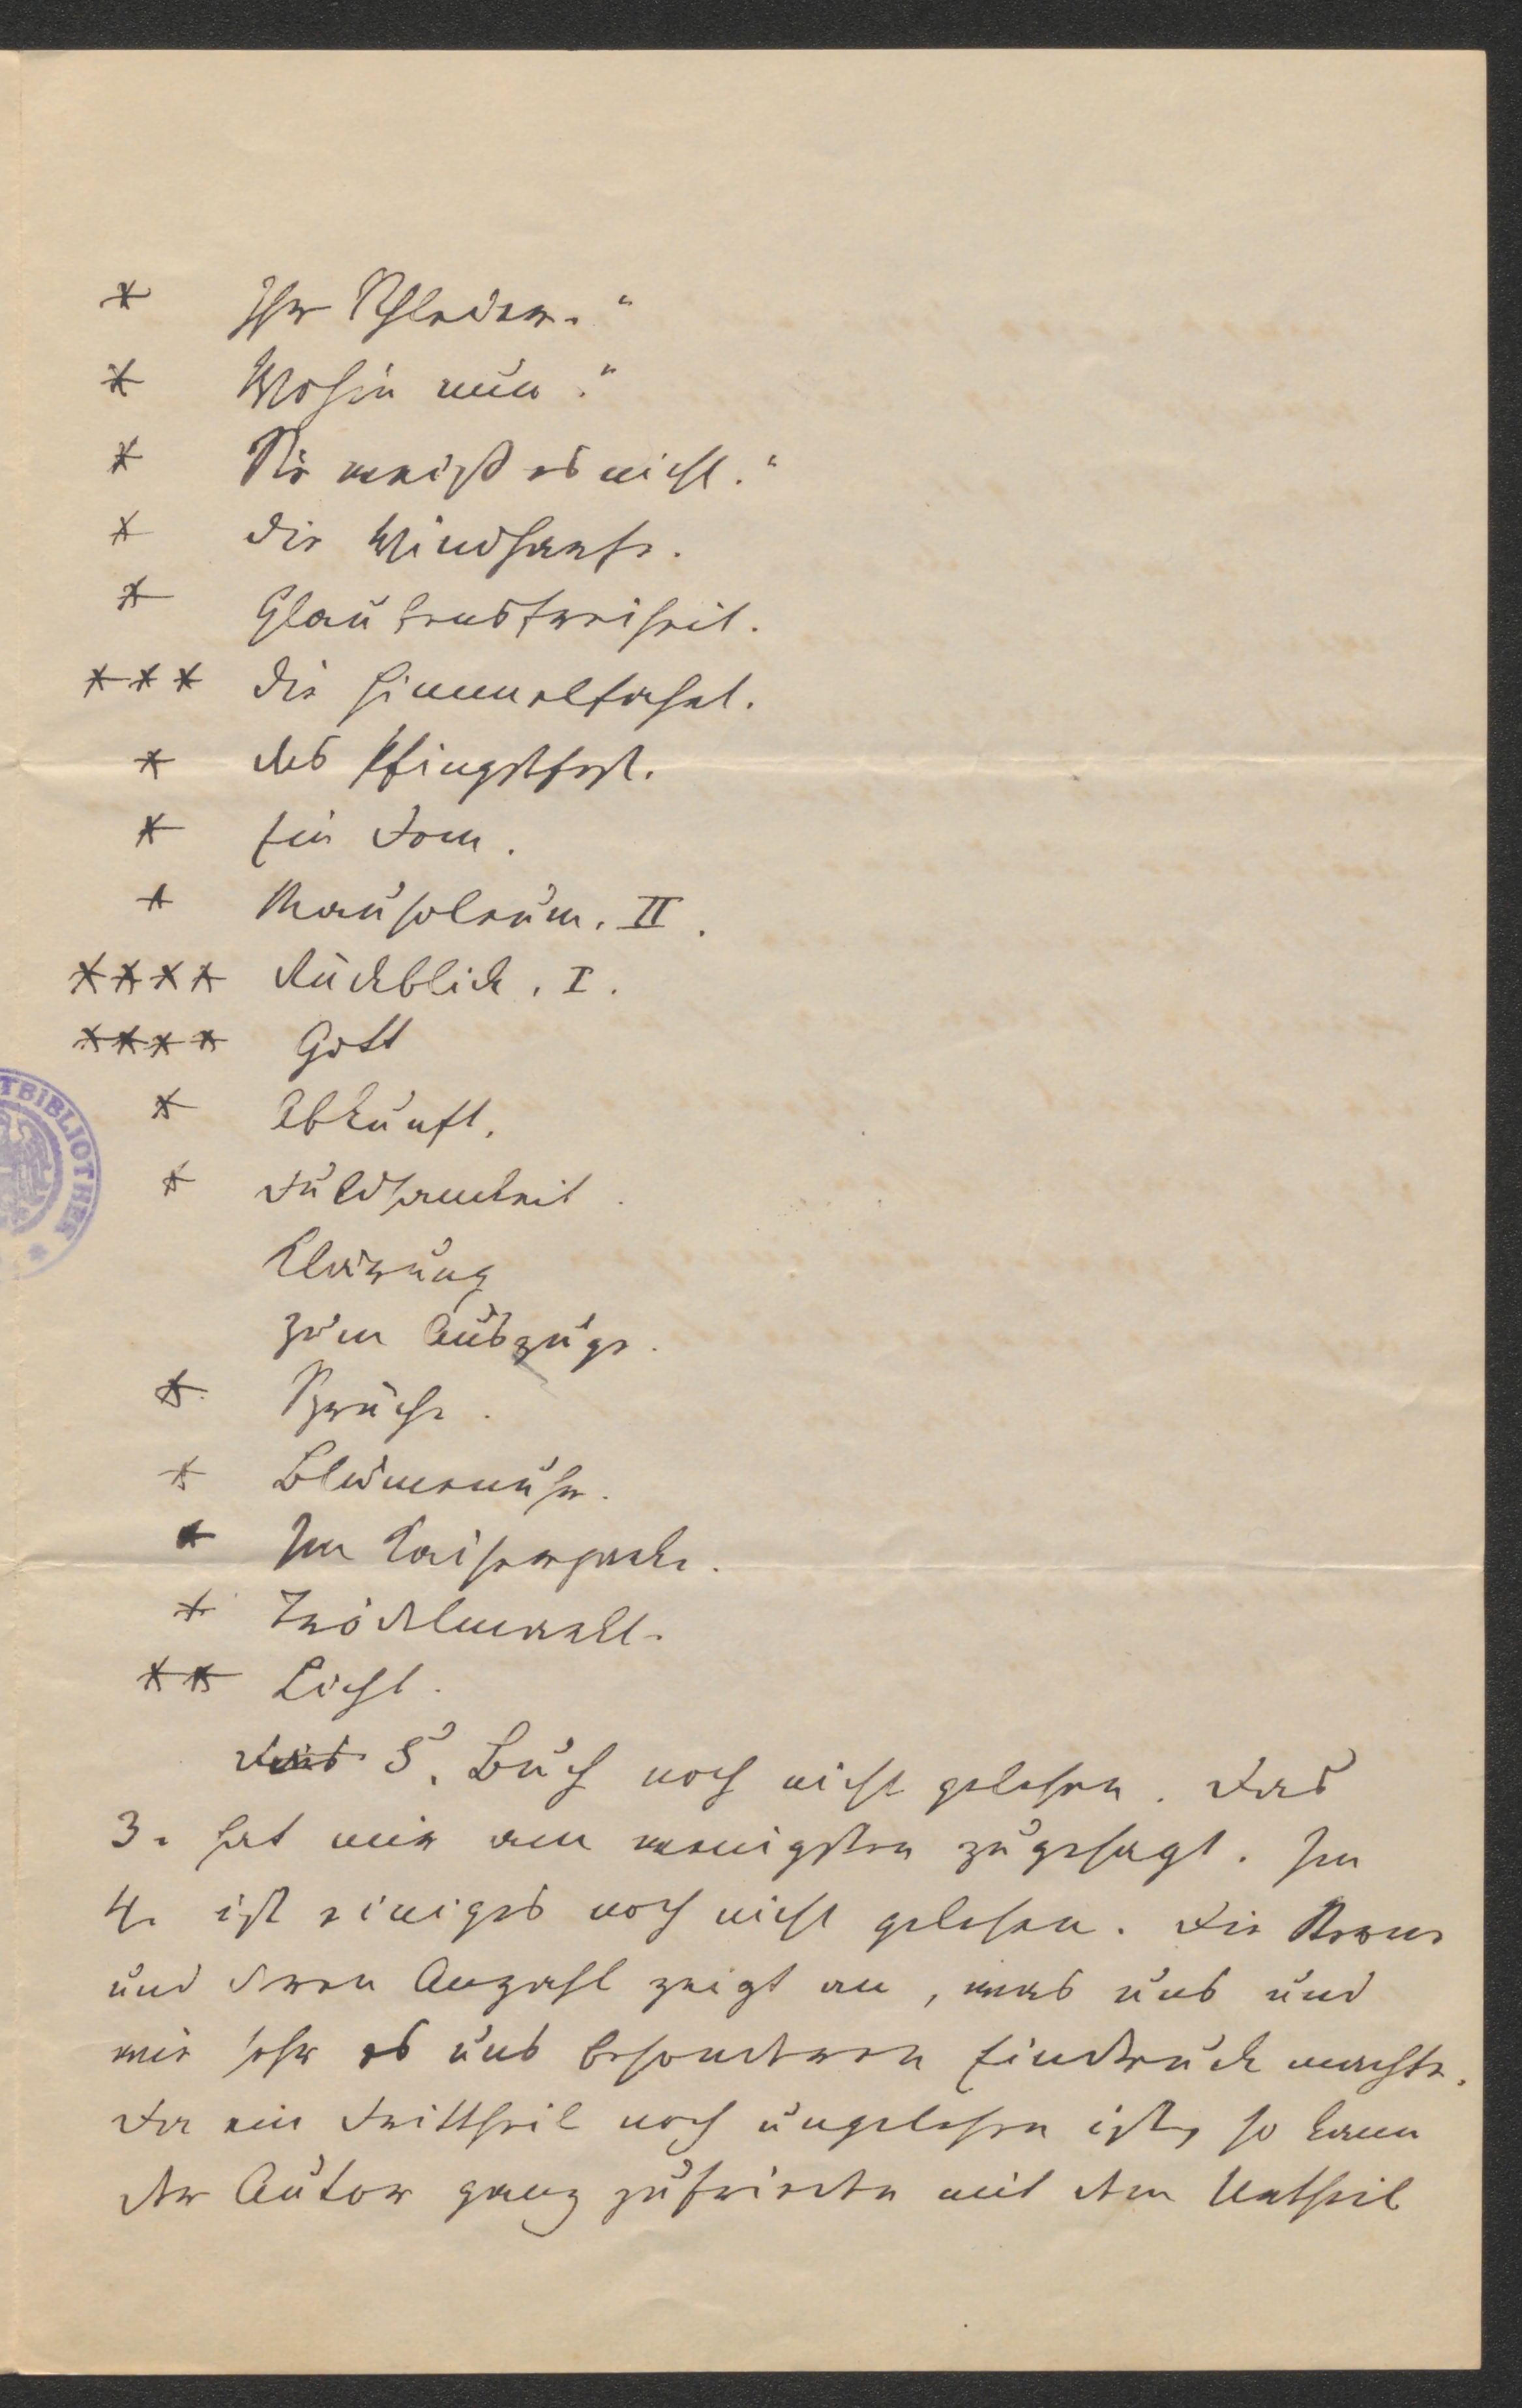 * Ihr Schleier."
* Wohin nun."
* Sie weiß es nicht."
* die Windharfe.
* Glaubensfreiheit.
*** die Himmelfahrt.
* das Pfingstfest.
* Ein Dom.
* Mausoleum. II.
**** Rückblick. I.
**** Gott
* Abkunft.
* Duldsamkeit.
Klärung
zum Auszuge.
* Sprüche.
* Blumenuhr.
* Im Kaiserparke.
* Trödelmarkt.
** Licht.
Das 5. Buch noch nicht gelesen. Das
3. hat mir am wenigsten zugesagt. Im
4. ist einiges noch nicht gelesen. Die Sterne
und deren Anzahl zeigt an, was uns und
wie sehr es uns besonderen Eindruck machte.
Da ein Drittheil noch ungelesen ist, so kann
der Autor ganz zufrieden mit dem Urtheil
TBIBLIOTHEK